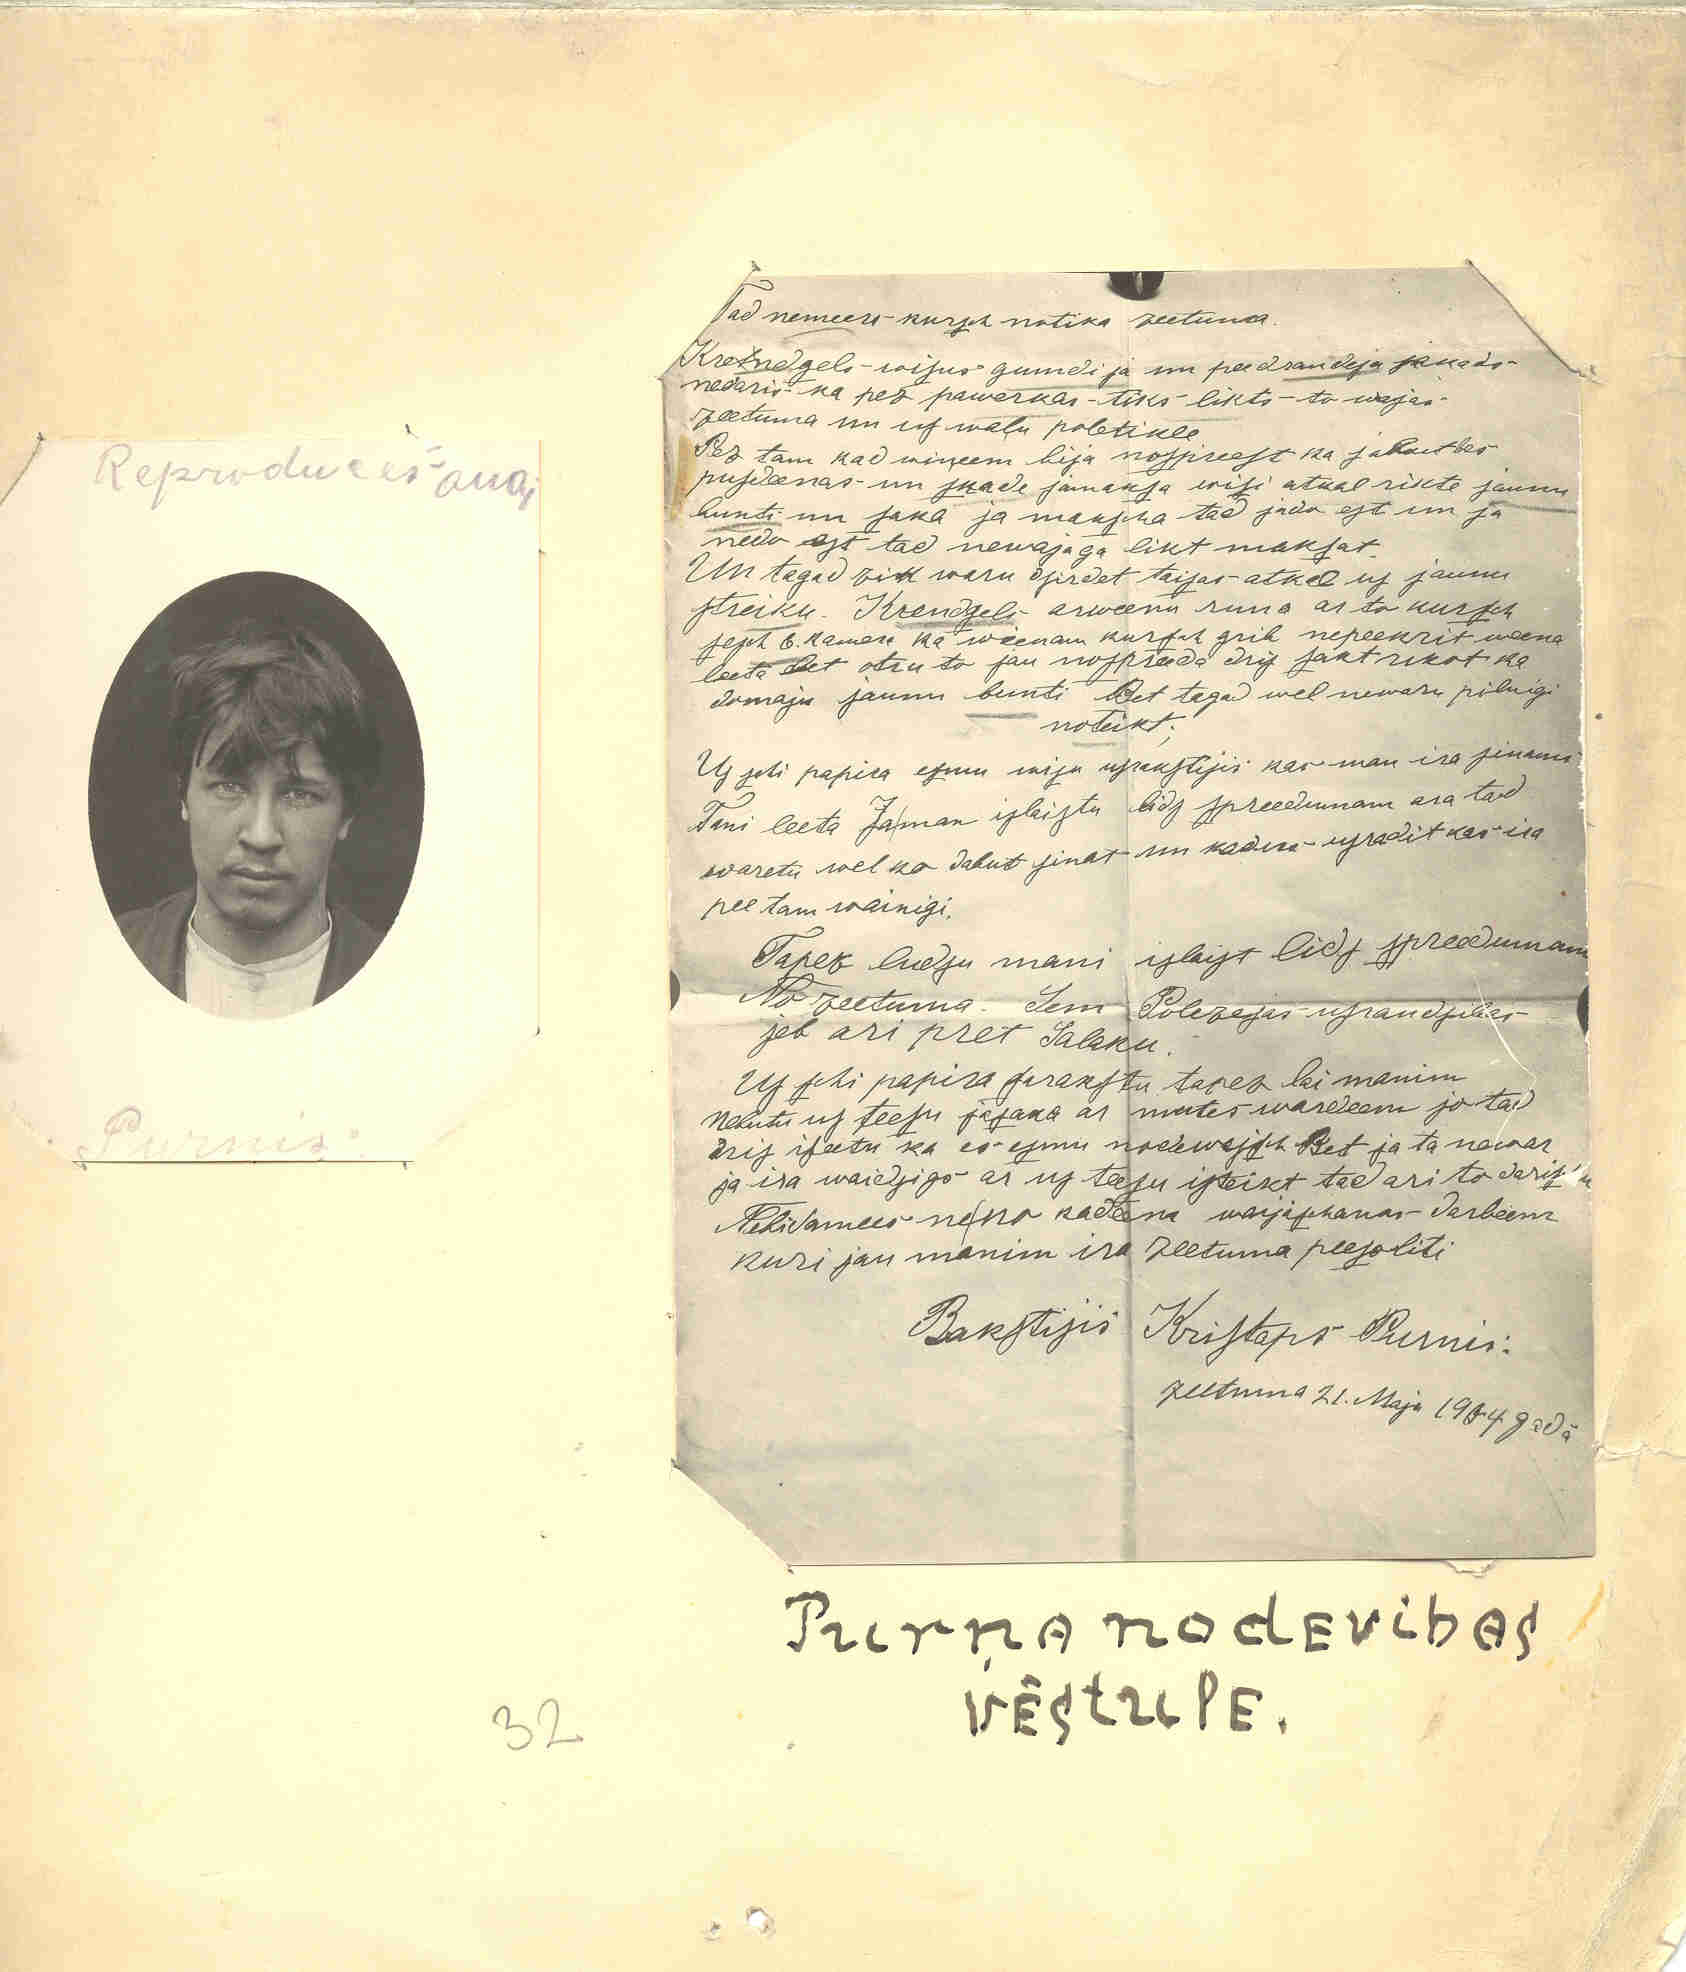 Reproducēšanai
Purnis:
Tad nemeers kursch notika zeetuma.
Krendgels wisus gumdija un peedraudeja ja kads
nedaris ka pez pawerkas tiks likts to wajas
zeetuma un us walu politikle
Pez tam kad wineem bija nospreest ka jabaibes
pusdeenas un skade jamaksa wisi atkal rikte jaunu
bunti un saka ja makscha tad jado est un ja
nedo est tad newajaga likt maksat.
Un tagad zik waru dsirdet taisas atkal us jaunu
streiku. Krendgels arweenu runa ar to kursch
sesch 6. kamera ka weenam kursch grib nepeekrit weena
leeta bet otru to jau nospreeda dris sakt rikot ka
domaju jaunu bunti Bet tagad wel newaru pilnigi
noteikt;
Us schi papira esmu wisu usrakstijis kas man ira sinams
Tani leeta Ja man islaistu lids spreedumam ara tad
waretu wel ko dabut sinat un kadus usradit kas ira
pee tam wainigi.
Tapez ludsu mani islaist lids spreedumam
No zeetuma. Sem Polezejas usraudsibas
jeb ari pret Salaku.
Us schi papira surakstu tapez lai manim
nebutu us teesu jasaka ar mutes wardeem jo tad
dris isetu ka es esmu nodewejsch Bet ja ta newar
ja ira waidsigs ar us teesu isteikt tad ari to darisu
Nebidamees neko kadeena waijaschanas darbeem
kuri jau manim ira zeetuma peesoliti
Rakstijis Kristaps Purnis:
zeetuma 21. Maja 1904 gadā
Purņa nodevības
vēstule.
32